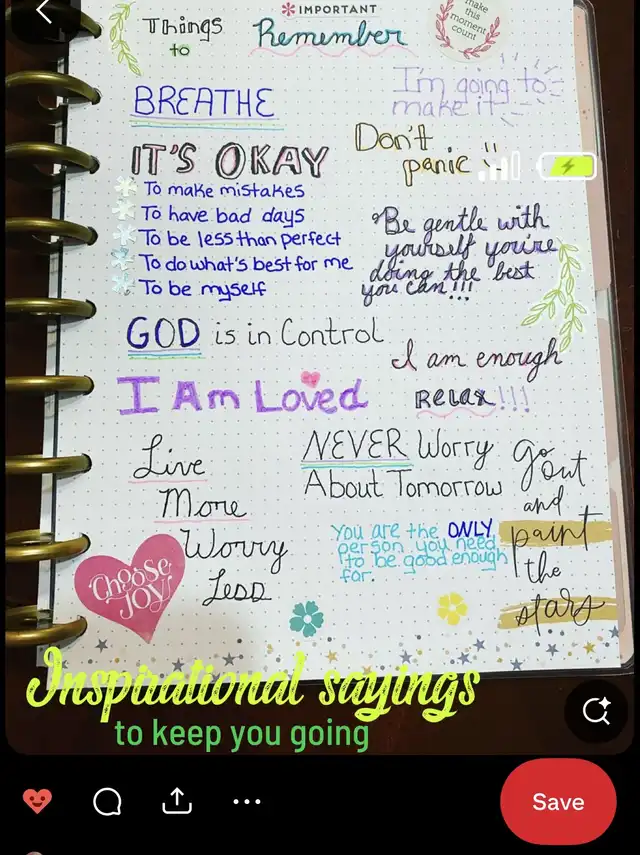 Things
to
*IMPORTANT
Remember
make
this
moment
count
BREATHE
I'm going to
make it
IT'S OKAY
To make mistakes
To have bad days
To be less than perfect
To do what's best for me
To be myself
Don't
panic !!
Be gentle with
yourself you're
doing the best
you can!!!
GOD is in Control
I am enough
I Am Loved
RELAX!!!
Live
More
Worry
Less
NEVER Worry
About Tomorrow
go
out
and
paint
the
stars
You are the ONLY
person you need
to be good enough
for.
Choose
JOY
Inspirational sayings
to keep you going
Save